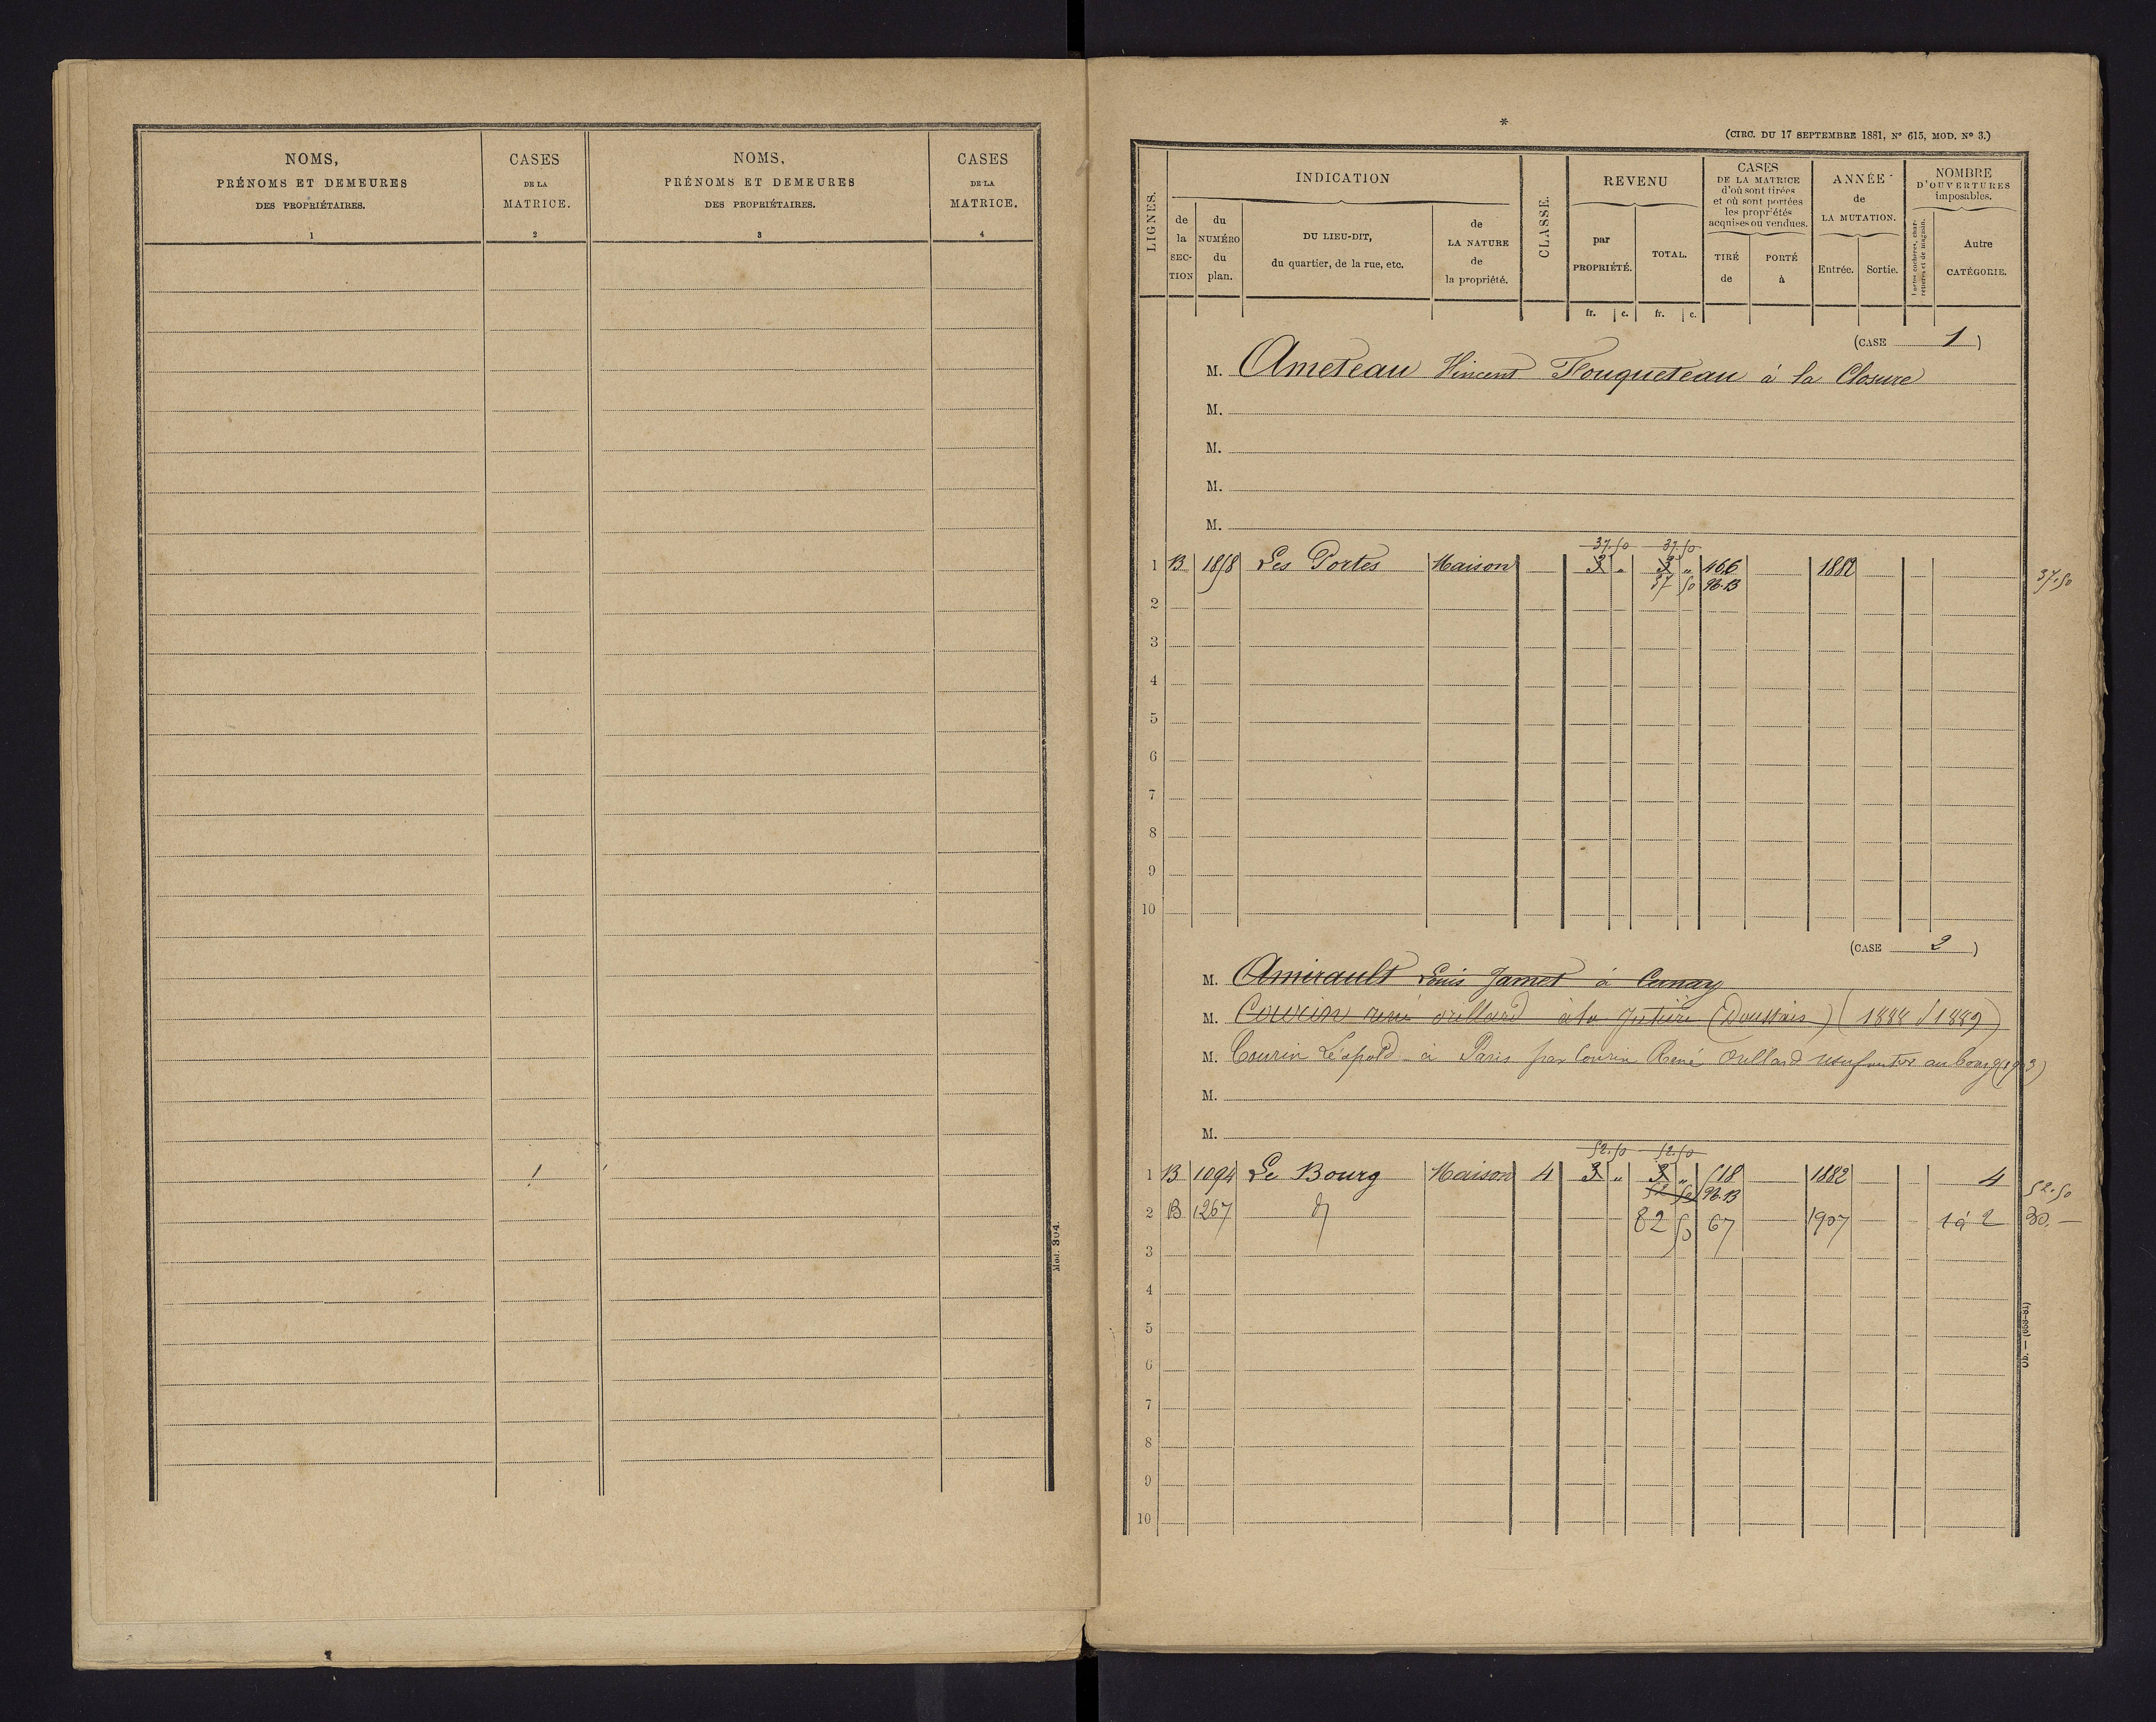 NOMS,
PRÉNOMS ET DEMEURES
DES PROPRIÉTAIRES.
1
CASES
DE LA
MATRICE.
2
NOMS,
PRÉNOMS ET DEMEURES
DES PROPRIÉTAIRES.
3
CASES
DE LA
MATRICE.
4
Mod. 304.
*
(CIRC. DU 17 SEPTEMBRE 1881, N° 615, MOD. N° 3.)
LIGNES.
INDICATION
de la SECTION
du NUMÉRO du plan.
DU LIEU-DIT,
du quartier, de la rue, etc.
de LA NATURE de la propriété.
CLASSE.
REVENU
par PROPRIÉTÉ.
TOTAL.
CASES
DE LA MATRICE
d'où sont tirées
et où sont portées
les propriétés
acquises ou vendues.
TIRÉ de
PORTÉ à
ANNÉE
de
LA MUTATION.
Entrée.
Sortie.
NOMBRE
D'OUVERTURES
imposables.
Portes cochères, charretières et de magasin.
Autre
CATÉGORIE.
fr. c. fr. c.
(CASE 1)
M. Ameteau Vincent Fouqueteau à la Closure
M.
M.
M.
M.
37.50 37.50
1 B 1858 Les Portes Maison 3 " 3 " 466 1882
37 50 96.13 37.50
2
3
4
5
6
7
8
9
10
(CASE 2)
M. Amirault Louis Jamet à Cernay
M. Courin rené orillard à la (Doussais) (1888 / 1889)
M. Courin Léopold à Paris par Courin René Orillard usufruitier au bourg (1903)
M.
M.
52.50 52.50
1 B 1094 Le Bourg Maison 4 3 " 3 " 518 1882 4
52 50 96.13 52.50
2 B 1267 d° 82 50 67 1907 1 à 2 30.—
3
4
5
6
7
8
9
10